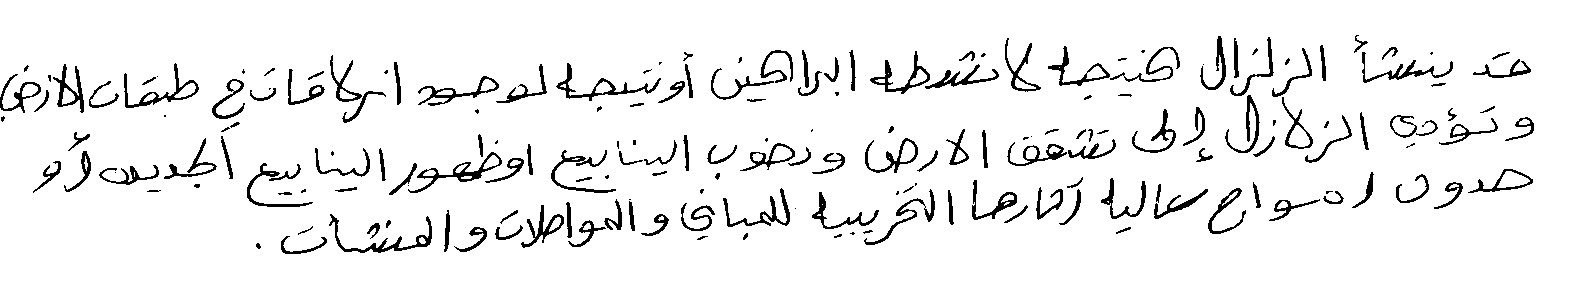 قد ينشأ الزلزال كنتيجه لانشطه البراكين أو نتيجه لوجود انزلاقات في طبقات الارض
وتؤدي الزلازل إلى تشقق الارض ونضوب الينابيع او ظهور الينابيع الجديده أو
حدوث امواج عاليه آثارها التخريبيه للمباني والمواصلات والمنشأت .